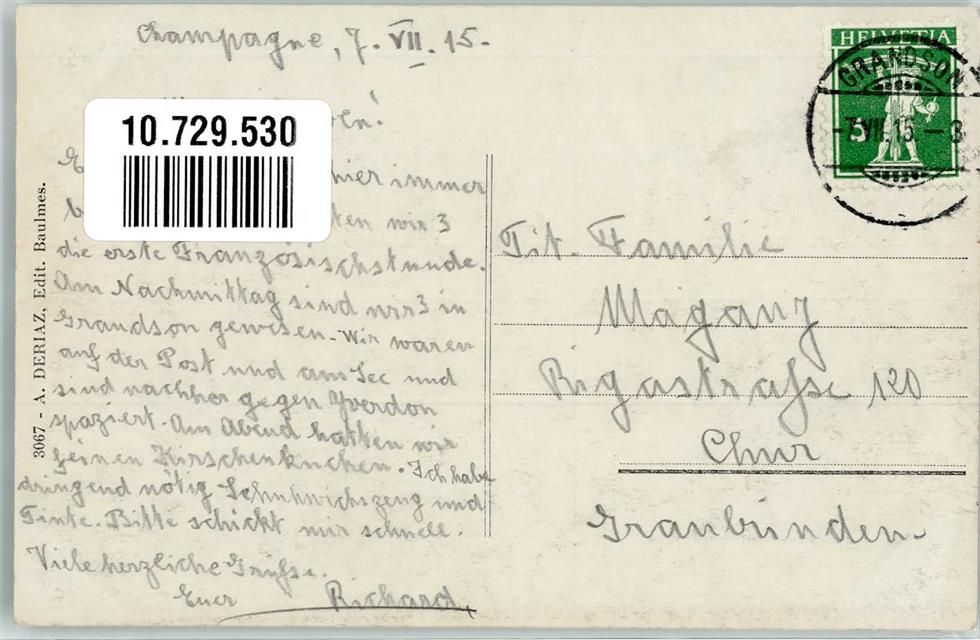 Champagne, 7. VII. 15.
10.729.530
hier immer
wir 3
die erste Französischstunde.
Am Nachmittag sind wir 3 in
Grandson gewesen. Wir waren
auf der Post und am See und
sind nachher gegen Yverdon
spaziert. Am Abend hatten wir
feinen Kirschenkuchen. Ich habe
dringend nötig Schuhwichszeug und
Tinte. Bitte schickt mir schnell.
Viele herzliche Grüsse.
Euer Richard.
3067 - A. DERIAZ, Edit. Baulmes.
HELVETIA
5
GRANDSON
-7.VII.15-8
Tit. Familie
Maganz
Rigastrasse 120
Chur
Graubünden.